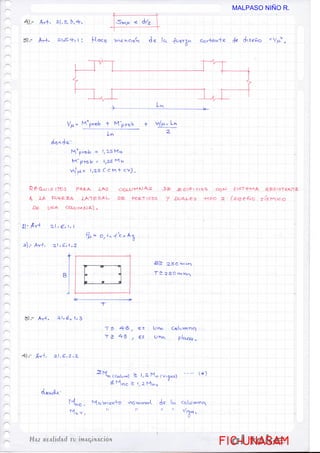 MALPASO NIÑO R.
4).- Art. 21.5.3.4. Smáx ≤ d/2
5).- Art. 21.5.4.1: Hace mención de la fuerza cortante de diseño "Vu".
Ln
Vu = M⁺prob + M⁻prob / Ln + Wu·Ln / 2
donde:
M⁺prob = 1,25 Mn
M⁻prob = 1,25 Mn
Wu = 1,25 (CM + CV).
REQUISITOS PARA LAS COLUMNAS DE EDIFICIOS CON SISTEMA RESISTENTE
A LA FUERZA LATERAL DE PORTICOS Y DUALES TIPO 2 (DISEÑO SÍSMICO
DE UNA COLUMNA).
1).- Art 21.6.1.1
2).- Art. 21.6.1.2
B
B ≥ 250 mm
T ≥ 250 mm
T
3).- Art. 21.6.1.3
T ≤ 4B, es una columna
T ≥ 4B, es una placa.
4).- Art. 21.6.2.2
ΣMn (column) ≥ 1,2 Mn (vigas) ---- (*)
ΣMnc ≥ 1,2 Mnv
donde:
Mnc: Momento nominal de la columna
Mnv: " " " " viga.
Haz realidad tu imaginación
FIC-UNASAM